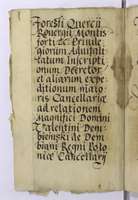 Foresti Quercii
Roverii Montis
forti &c. Privile
giorum Aduitali
tatum Inscripti
onum Decretor
et aliarum expe
ditionum maio
ris Cancellariae
ad relationem
Magnifici Domini
Valentini Dem
bienski de Dem
biani Regni Polo
niae Cancellarij